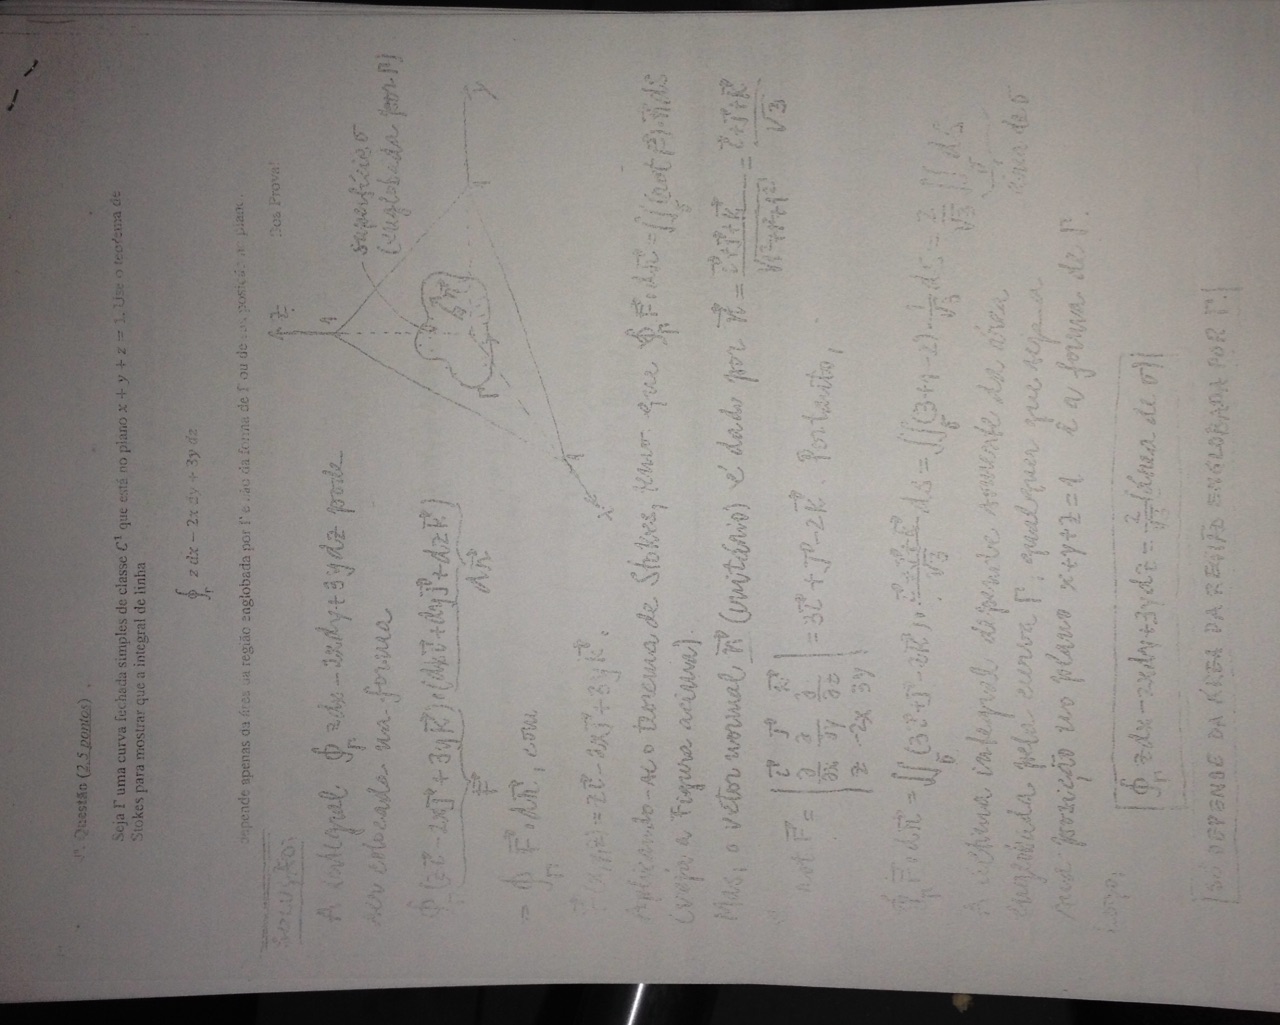 Questão (2,5 pontos)
Seja Γ uma curva fechada simples de classe C¹ que está no plano x + y + z = 1. Use o teorema de
Stokes para mostrar que a integral de linha
∮_Γ z dx − 2x dy + 3y dz
depende apenas da área da região englobada por Γ e não da forma de Γ ou de sua posição no plano.
Boa Prova!
SOLUÇÃO:
A integral ∮_Γ zdx − 2xdy + 3ydz pode
ser colocada na forma
∮_Γ (z i⃗ − 2x j⃗ + 3y k⃗)·(dx i⃗ + dy j⃗ + dz k⃗)
F⃗ dr⃗
= ∮_Γ F⃗·dr⃗, com
F⃗(x,y,z) = z i⃗ − 2x j⃗ + 3y k⃗.
z
1
superfície σ
(englobada por Γ)
n⃗
Γ
1
y
1
x
Aplicando-se o teorema de Stokes, temos que ∮_Γ F⃗·dr⃗ = ∬_σ (rot F⃗)·n⃗ ds
(veja a Figura acima).
Mas, o vetor normal n⃗ (unitário) é dado por n⃗ = (i⃗ + j⃗ + k⃗)/√(1²+1²+1²) = (i⃗ + j⃗ + k⃗)/√3
rot F⃗ = | i⃗ j⃗ k⃗ |
| ∂/∂x ∂/∂y ∂/∂z | = 3i⃗ + j⃗ − 2k⃗. Portanto,
| z −2x 3y |
∮_Γ F⃗·dr⃗ = ∬_σ (3i⃗ + j⃗ − 2k⃗)·(i⃗ + j⃗ + k⃗)/√3 ds = ∬_σ (3+1−2)·1/√3 ds = 2/√3 ∬_σ ds
área de σ
A última integral depende somente da área
englobada pela curva Γ, qualquer que seja a
sua posição no plano x+y+z=1 e a forma de Γ.
Logo,
∮_Γ zdx − 2xdy + 3ydz = 2/√3 (área de σ)
SÓ DEPENDE DA ÁREA DA REGIÃO ENGLOBADA POR Γ.